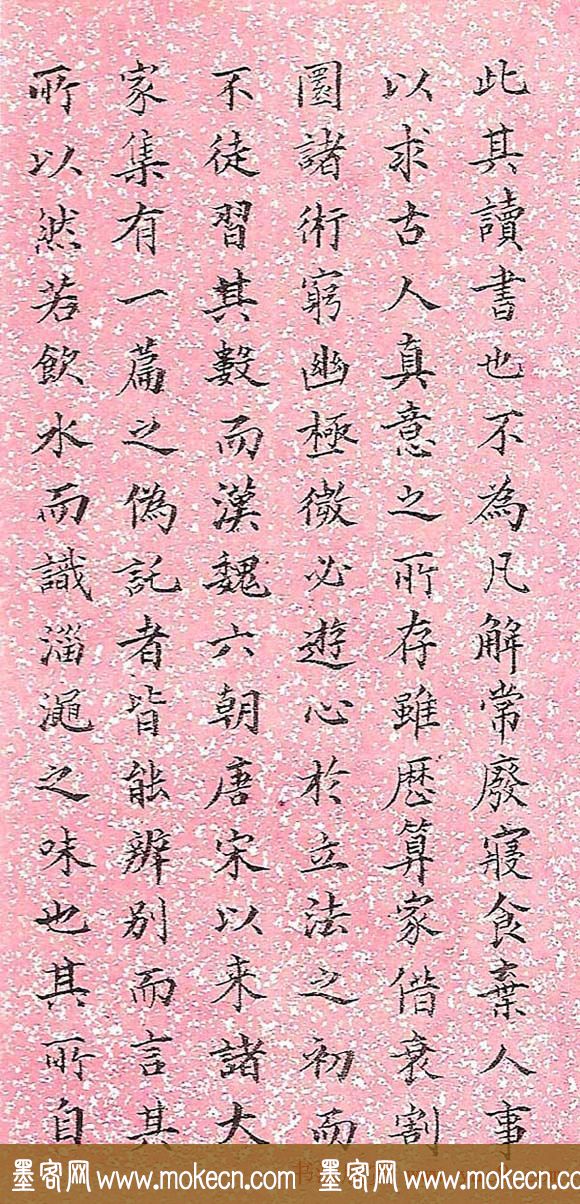 此其讀書也不為凡解常廢寢食棄人事
以求古人真意之所存雖歷算家借衰割
圜諸術窮幽極微必遊心於立法之初而
不徒習其數而漢魏六朝唐宋以来諸大
家集有一篇之偽託者皆能辨别而言其
所以然若飲水而識淄澠之味也其所自
墨客网www.mokecn.com 墨客网www.mokecn.com